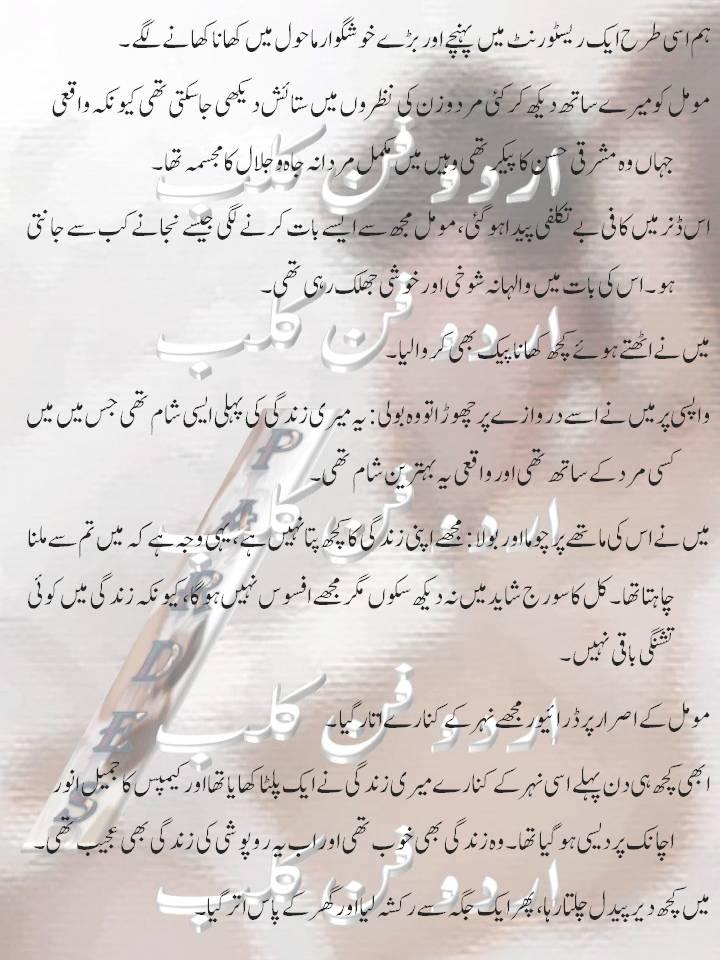 ہم اسی طرح ایک ریسٹورنٹ میں پہنچے اور بڑے خوشگوار ماحول میں کھانا کھانے لگے۔
مومل کو میرے ساتھ دیکھ کر کئی مرد و زن کی نظروں میں ستائش دیکھی جا سکتی تھی کیونکہ واقعی
جہاں وہ مشرقی حسن کا پیکر تھی وہیں میں مکمل مردانہ جاہ و جلال کا مجسمہ تھا۔
اردو فن کلب
اس ڈنر میں کافی بے تکلفی پیدا ہو گئی، مومل مجھ سے ایسے بات کرنے لگی جیسے نجانے کب سے جانتی
ہو۔ اس کی بات میں والہانہ شوخی اور خوشی جھلک رہی تھی۔
اردو فن کلب
میں نے اٹھتے ہوئے کچھ کھانا پیک بھی کروا لیا۔
واپسی پر میں نے اسے دروازے پر چھوڑا تو وہ بولی: یہ میری زندگی کی پہلی ایسی شام تھی جس میں میں
کسی مرد کے ساتھ تھی اور واقعی یہ بہترین شام تھی۔
اردو فن کلب
میں نے اس کی ماتھے پر چوما اور بولا: مجھے اپنی زندگی کا کچھ پتا نہیں ہے، یہی وجہ ہے کہ میں تم سے ملنا
چاہتا تھا۔ کل کا سورج شاید میں نہ دیکھ سکوں مگر مجھے افسوس نہیں ہو گا، کیونکہ زندگی میں کوئی
تشنگی باقی نہیں۔
اردو فن کلب
مومل کے اصرار پر ڈرائیور مجھے نہر کے کنارے اتار گیا۔
ابھی کچھ ہی دن پہلے اسی نہر کے کنارے میری زندگی نے ایک پلٹا کھایا تھا اور کیمپس کا جمیل انور
اچانک پردیسی ہو گیا تھا۔ وہ زندگی بھی خوب تھی اور اب یہ روپوشی کی زندگی بھی عجیب تھی۔
اردو فن کلب
میں کچھ دیر پیدل چلتا رہا، پھر ایک جگہ سے رکشہ لیا اور گھر کے پاس اتر گیا۔